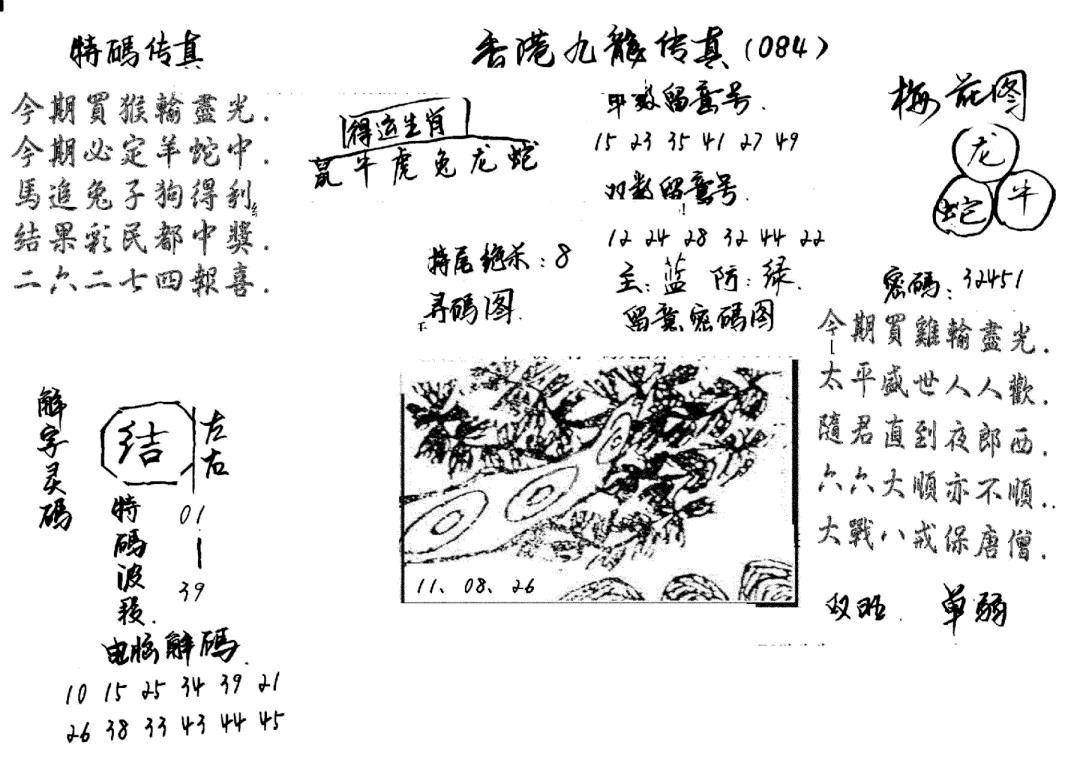 特碼传真
今期買猴輸盡光.
今期必定羊蛇中.
馬追兔子狗得利
结果彩民都中獎.
二六二七四報喜.
香港九龍传真(084)
得运生肖
鼠牛虎兔龙蛇
单数留意号.
15 23 35 41 27 49
双数留意号.
12 24 28 32 44 22
特尾绝杀:8
主:蓝 防:绿.
寻码图.
留意密码图
梅花图
龙
蛇 牛
密碼:32451
今期買雞輸盡光.
太平盛世人人歡.
隨君直到夜郎西.
六六大順亦不順..
大戰八戒保唐僧.
双旺. 单弱
11、08、26
解字灵碼
结
左右
特碼波段.
01—39
电脑解碼.
10 15 25 34 39 21
26 38 33 43 44 45